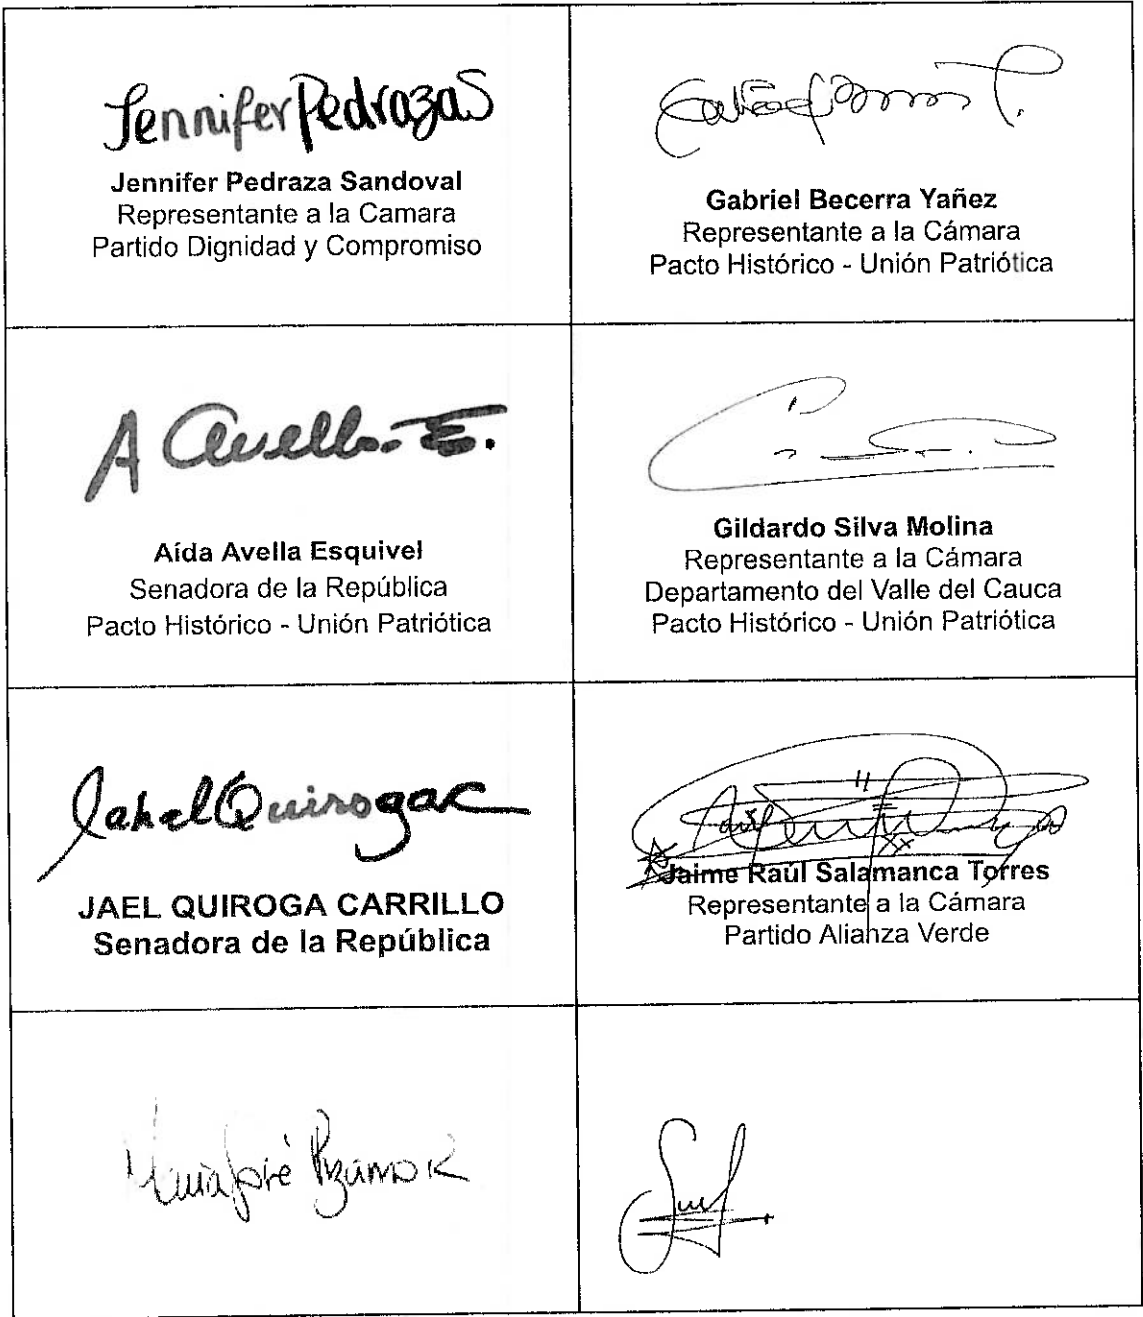 Jennifer PedrazaS
Jennifer Pedraza Sandoval
Representante a la Camara
Partido Dignidad y Compromiso
Gabriel Becerra Yañez
Representante a la Cámara
Pacto Histórico - Unión Patriótica
A Avella E.
Aída Avella Esquivel
Senadora de la República
Pacto Histórico - Unión Patriótica
Gildardo Silva Molina
Representante a la Cámara
Departamento del Valle del Cauca
Pacto Histórico - Unión Patriótica
Jahel Quiroga C
JAEL QUIROGA CARRILLO
Senadora de la República
Jaime Raúl Salamanca Torres
Representante a la Cámara
Partido Alianza Verde
María José Pizarro R